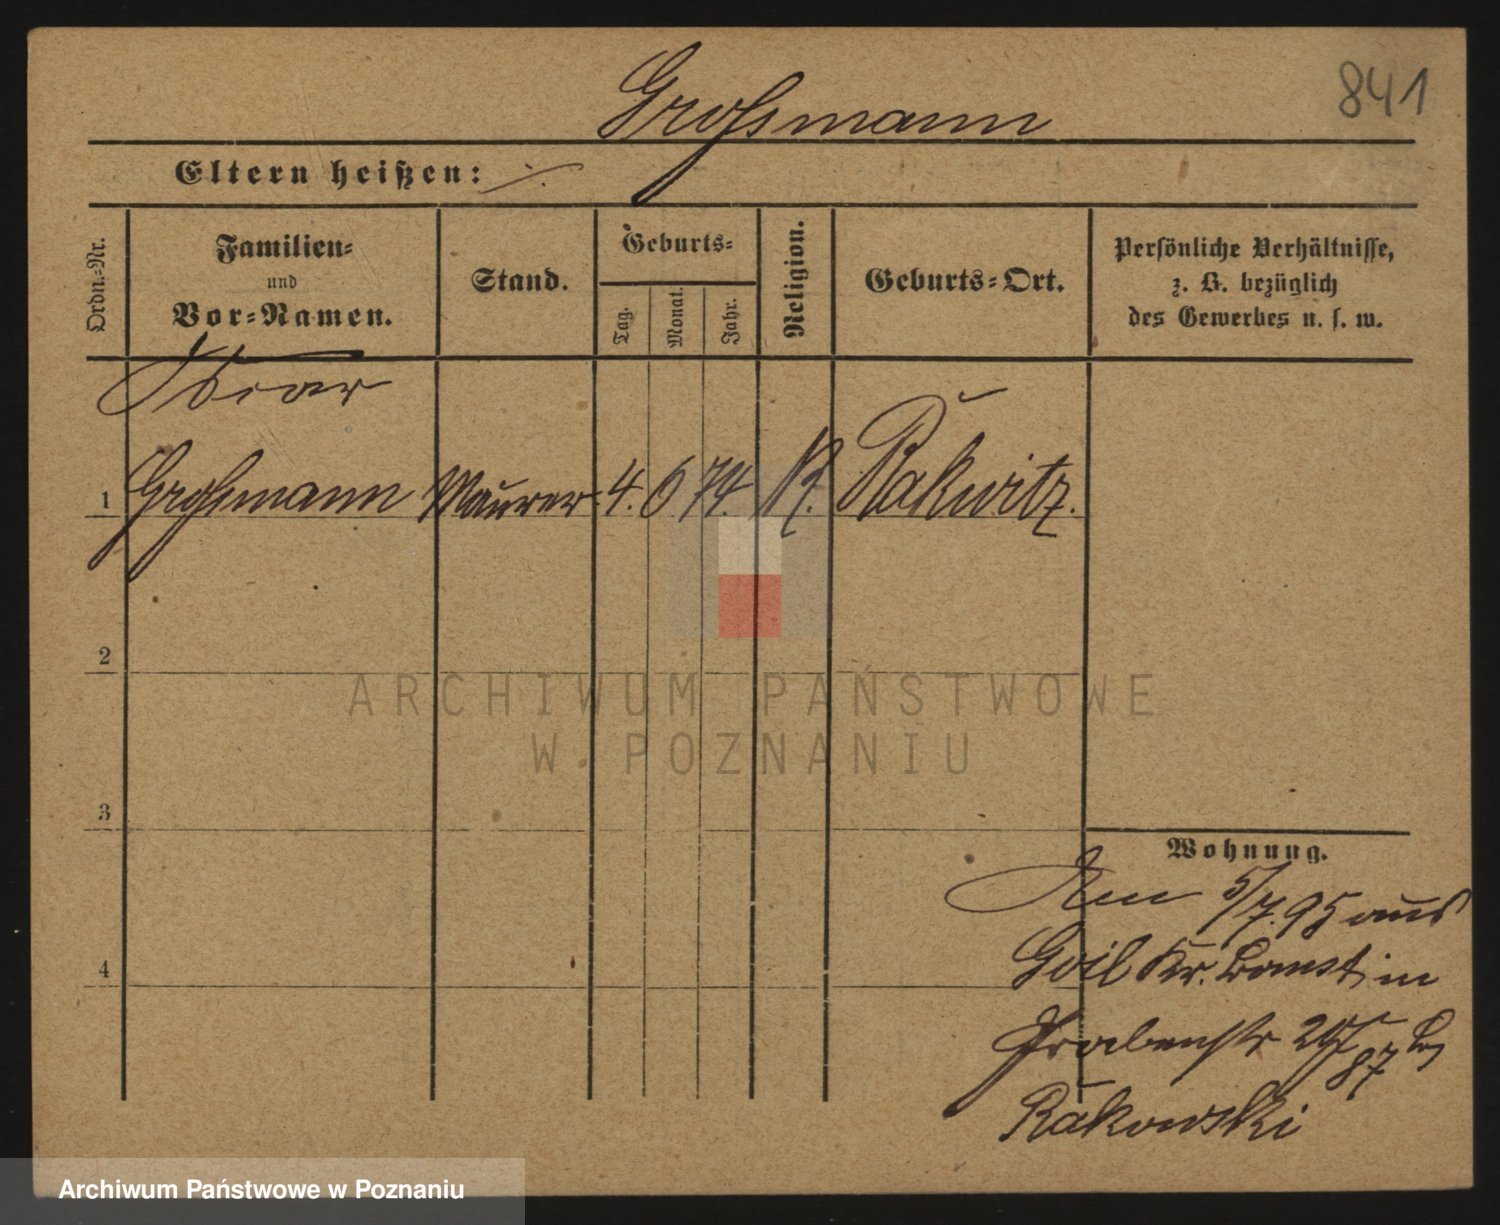 841
Großmann
Eltern heißen: ./.
Ordn.-Nr.
Familien-
und
Vor-Namen.
Stand.
Geburts-
Tag.
Monat.
Jahr.
Religion.
Geburts-Ort.
Persönliche Verhältnisse,
z. B. bezüglich
des Gewerbes u. s. w.
1 Großmann Maurer 4. 6 74. K. Rakwitz.
2
ARCHIWUM PAŃSTWOWE
W POZNANIU
3
Wohnung.
Am 5/7.95 aus
Goil Kr. Bomst in
4
Grabenstr 25/87 b/
Rakowski
Archiwum Państwowe w Poznaniu